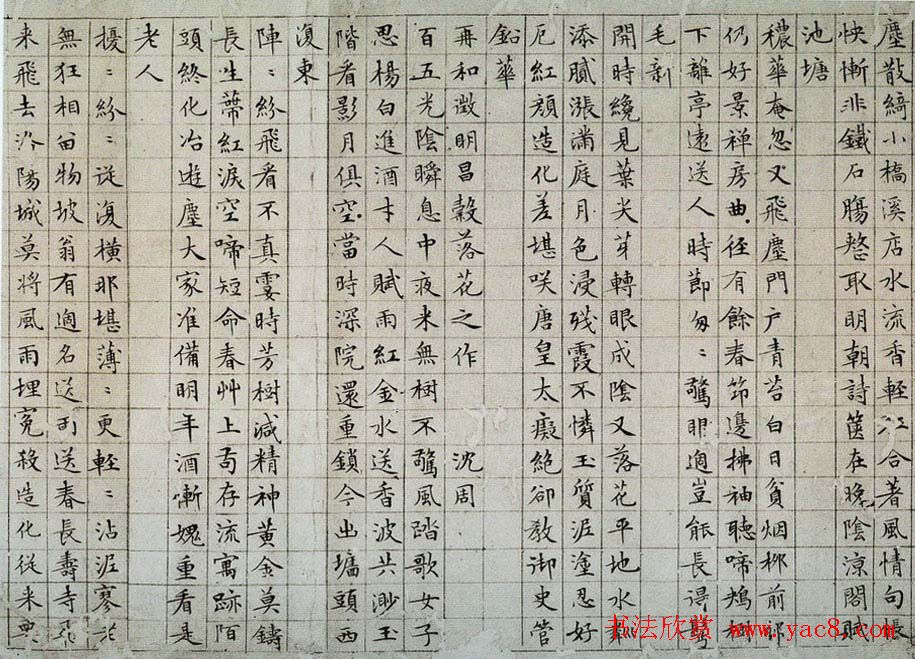 塵散綺小橋溪店水流香輕紅合著風情句悵
快慚非鐵石腸整取明朝詩篋在晚陰涼閣賦
池塘
穠華奄忽又飛塵門戶青苔白日貧烟柳前
仍好景禪房曲徑有餘春笻邊拂袖聽啼鴂柳
下離亭遠送人時節匆〻驚眼過豈能長得鬢
毛新
開時纔見葉尖芽轉眼成陰又落花平地水
添膩漲滿庭月色浸殘霞不憐玉質泥塗忍好
厄紅顏造化差堪咲唐皇太癡絕卻教御史管
鉛華
再和徵明昌穀落花之作 沈周
百五光陰瞬息中夜來無樹不驚風踏歌女子
思楊白進酒才人賦雨紅金水送香波共渺玉
階看影月俱空當時深院還重鎖今出墻頭西
復東
陣〻紛飛看不真霎時芳樹減精神黃金莫鑄
長生蔕紅淚空啼短命春艸上苟存流寓跡陌
頭終化冶遊塵大家准備明年酒慚媿重看是
老人
擾〻紛〻從復橫那堪薄〻更輕〻沾泥寥於
無狂相留物坡翁有過名送雨送春長壽寺飛
來飛去洛陽城莫將風雨埋冤殺造化從來要
书法欣赏 www.yac8.com